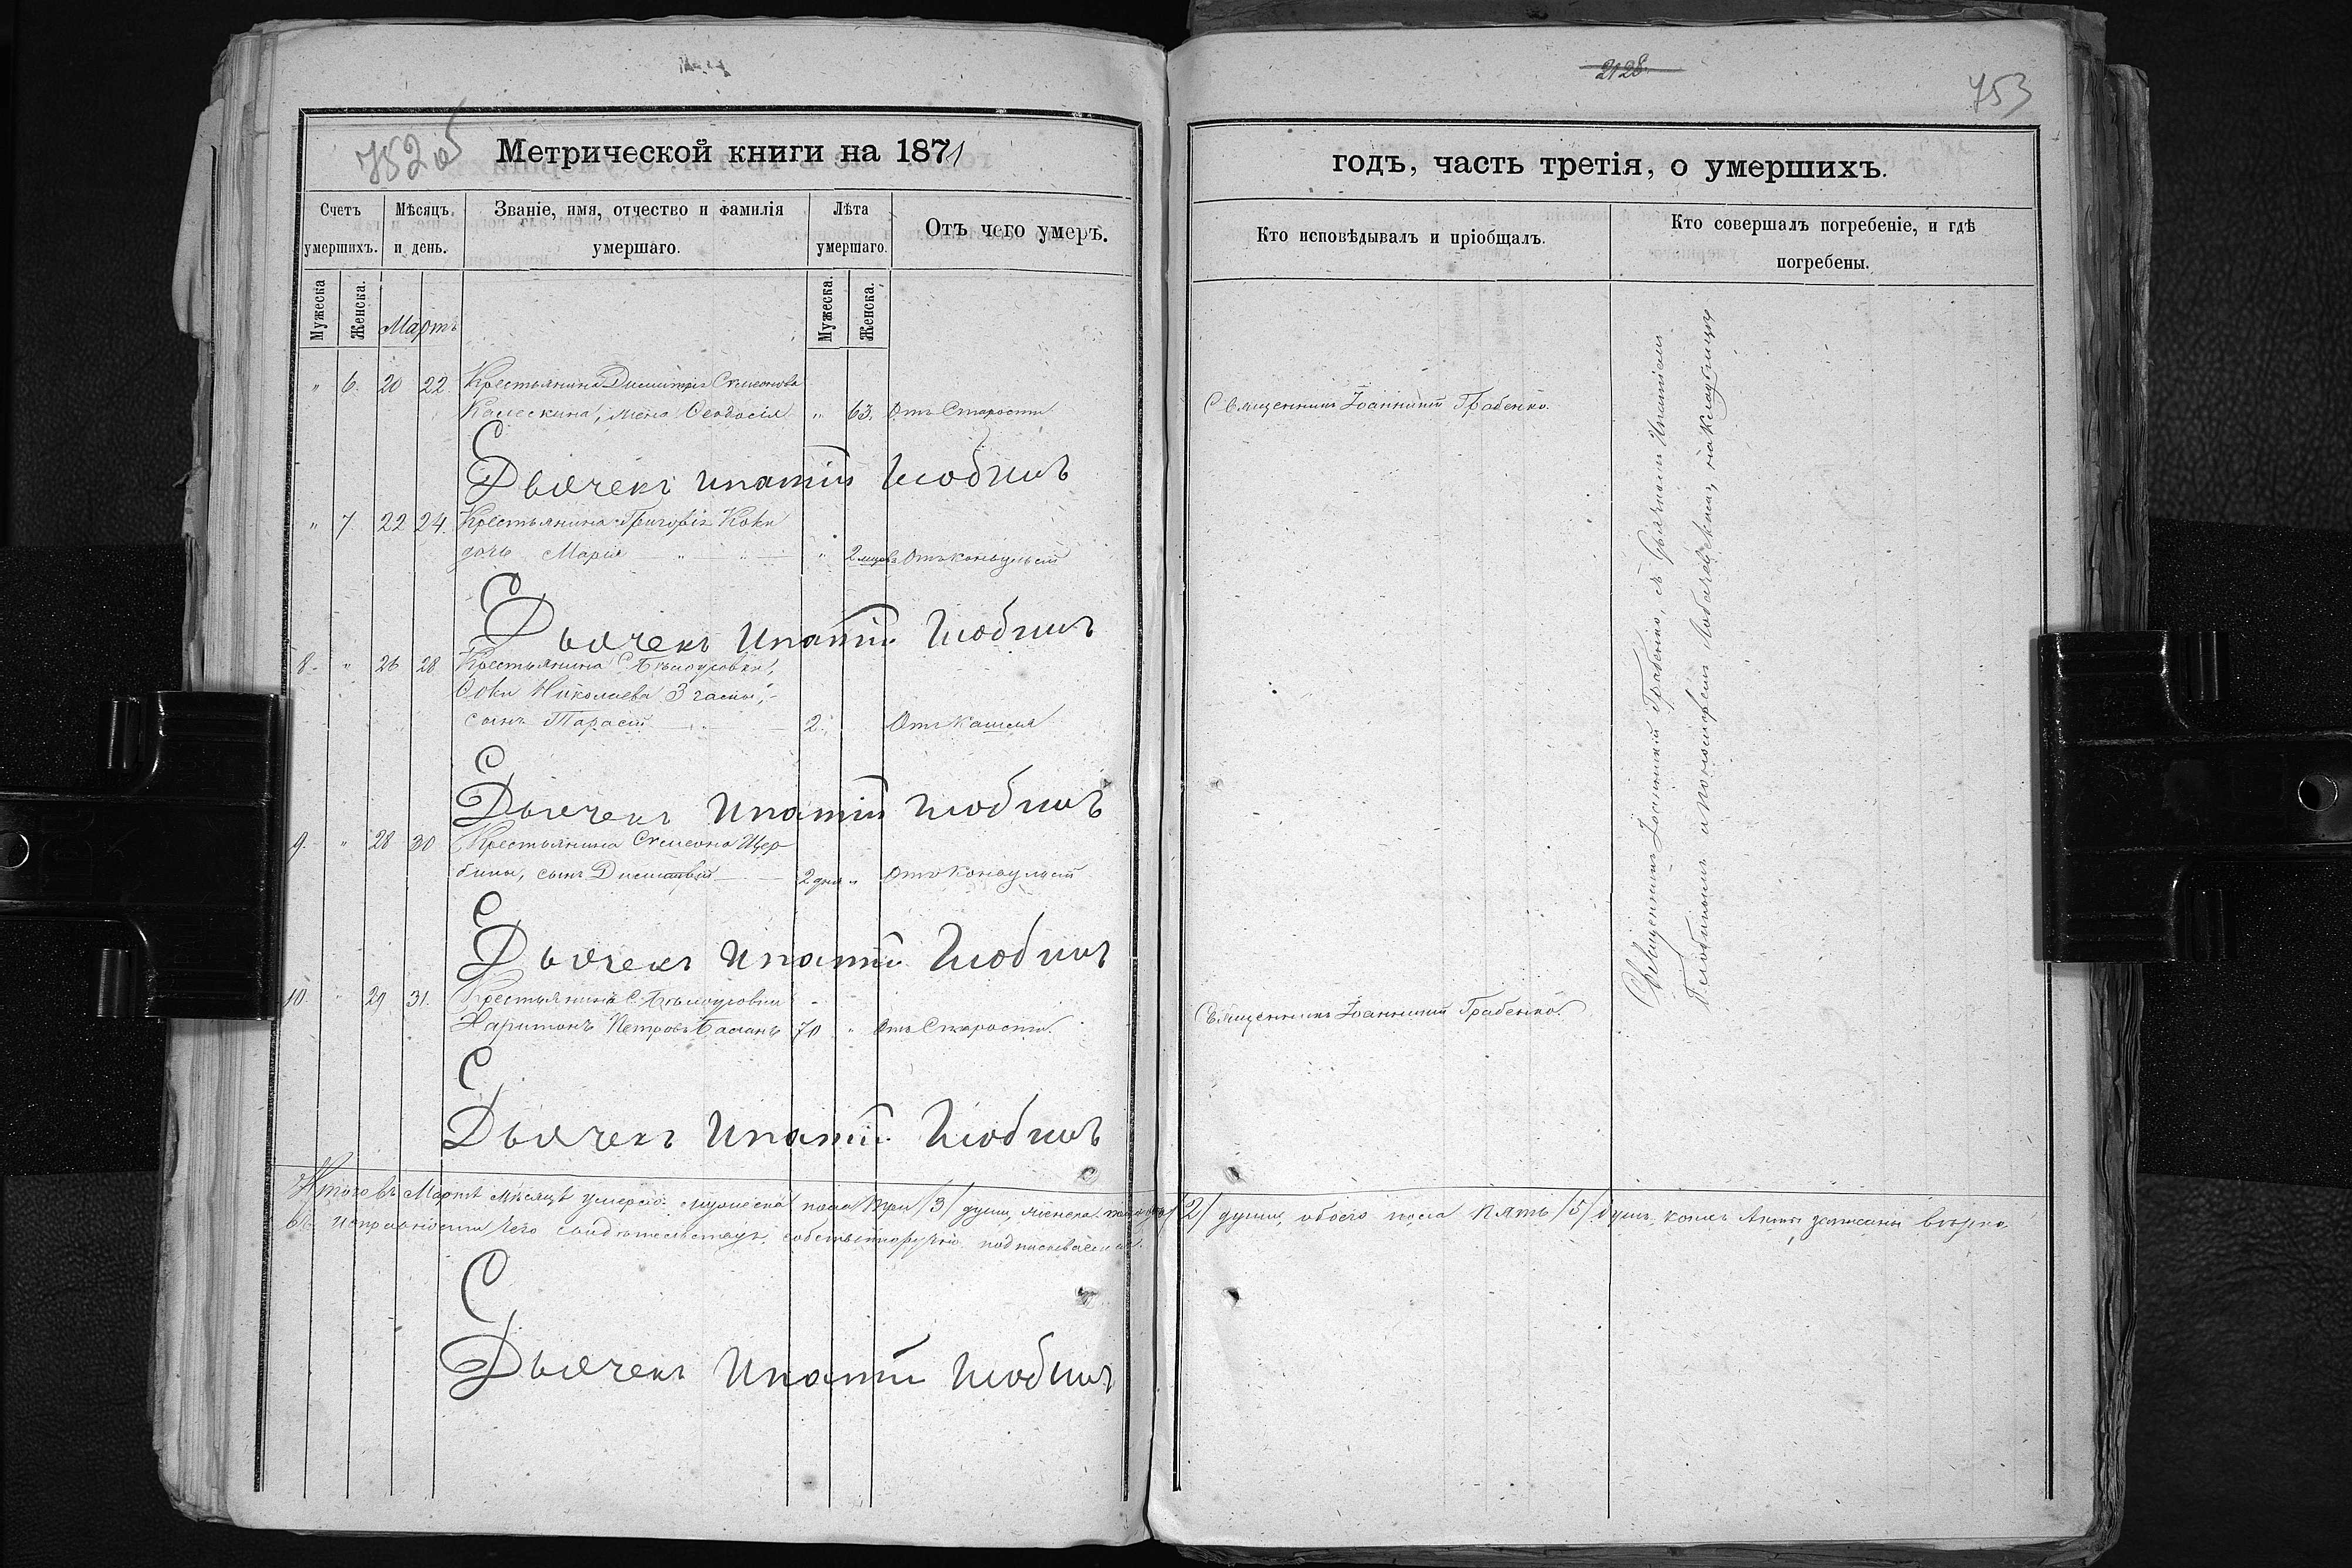 2128
753
752 об
Метрической книги на 1871
годъ, часть третія, о умершихъ.
Счетъ умершихъ.
Мѣсяцъ и день.
Званіе, имя, отчество и фамилія умершаго.
Лѣта умершаго.
Отъ чего умеръ.
Кто исповѣдывалъ и пріобщалъ.
Кто совершалъ погребеніе, и гдѣ
погребены.
Мужеска
Женска.
Мартъ
Мужеска.
Женска.
" 6. 20 22 Крестьянина Димитрія Симеонова
жена Ѳеодосія " 63. Отъ Старости
Священникъ Іоанникій Грабенко.
С
Дьячекъ Ипатій
" 7. 22 24. Крестьянина Григорія Коки
дочь Марія " " " 2 Отъ Конвульсій
С
Дьячекъ Ипатій
8. " 26 28 Крестьянина С.
Николаева
сынъ Тарасій 2. Отъ Кашля
С
Дьячекъ Ипатій
9. " 28 30 Крестьянина Симеона Щер-
бины, сынъ Димитрій 2 дня " Отъ Конвульсій
С
Дьячекъ Ипатій
10. " 29 31. Крестьянинъ С.
Харитонъ Петровъ 70 " Отъ Старости.
Священникъ Іоанникій Грабенко.
С
Дьячекъ Ипатій
Священникъ Іоанникій Грабенко, съ Дьячкомъ Ипатіемъ
и пономаремъ на кладбищѣ
Итого въ Мартѣ мѣсяцѣ умерло: мужеска пола три /3/ души, женска /2/ души, обоего пола пять /5/ душъ, коихъ Акты записаны вѣрно
въ исправности чего свидѣтельствуя собственноручно подписываемся.
С
Дьячекъ Ипатій